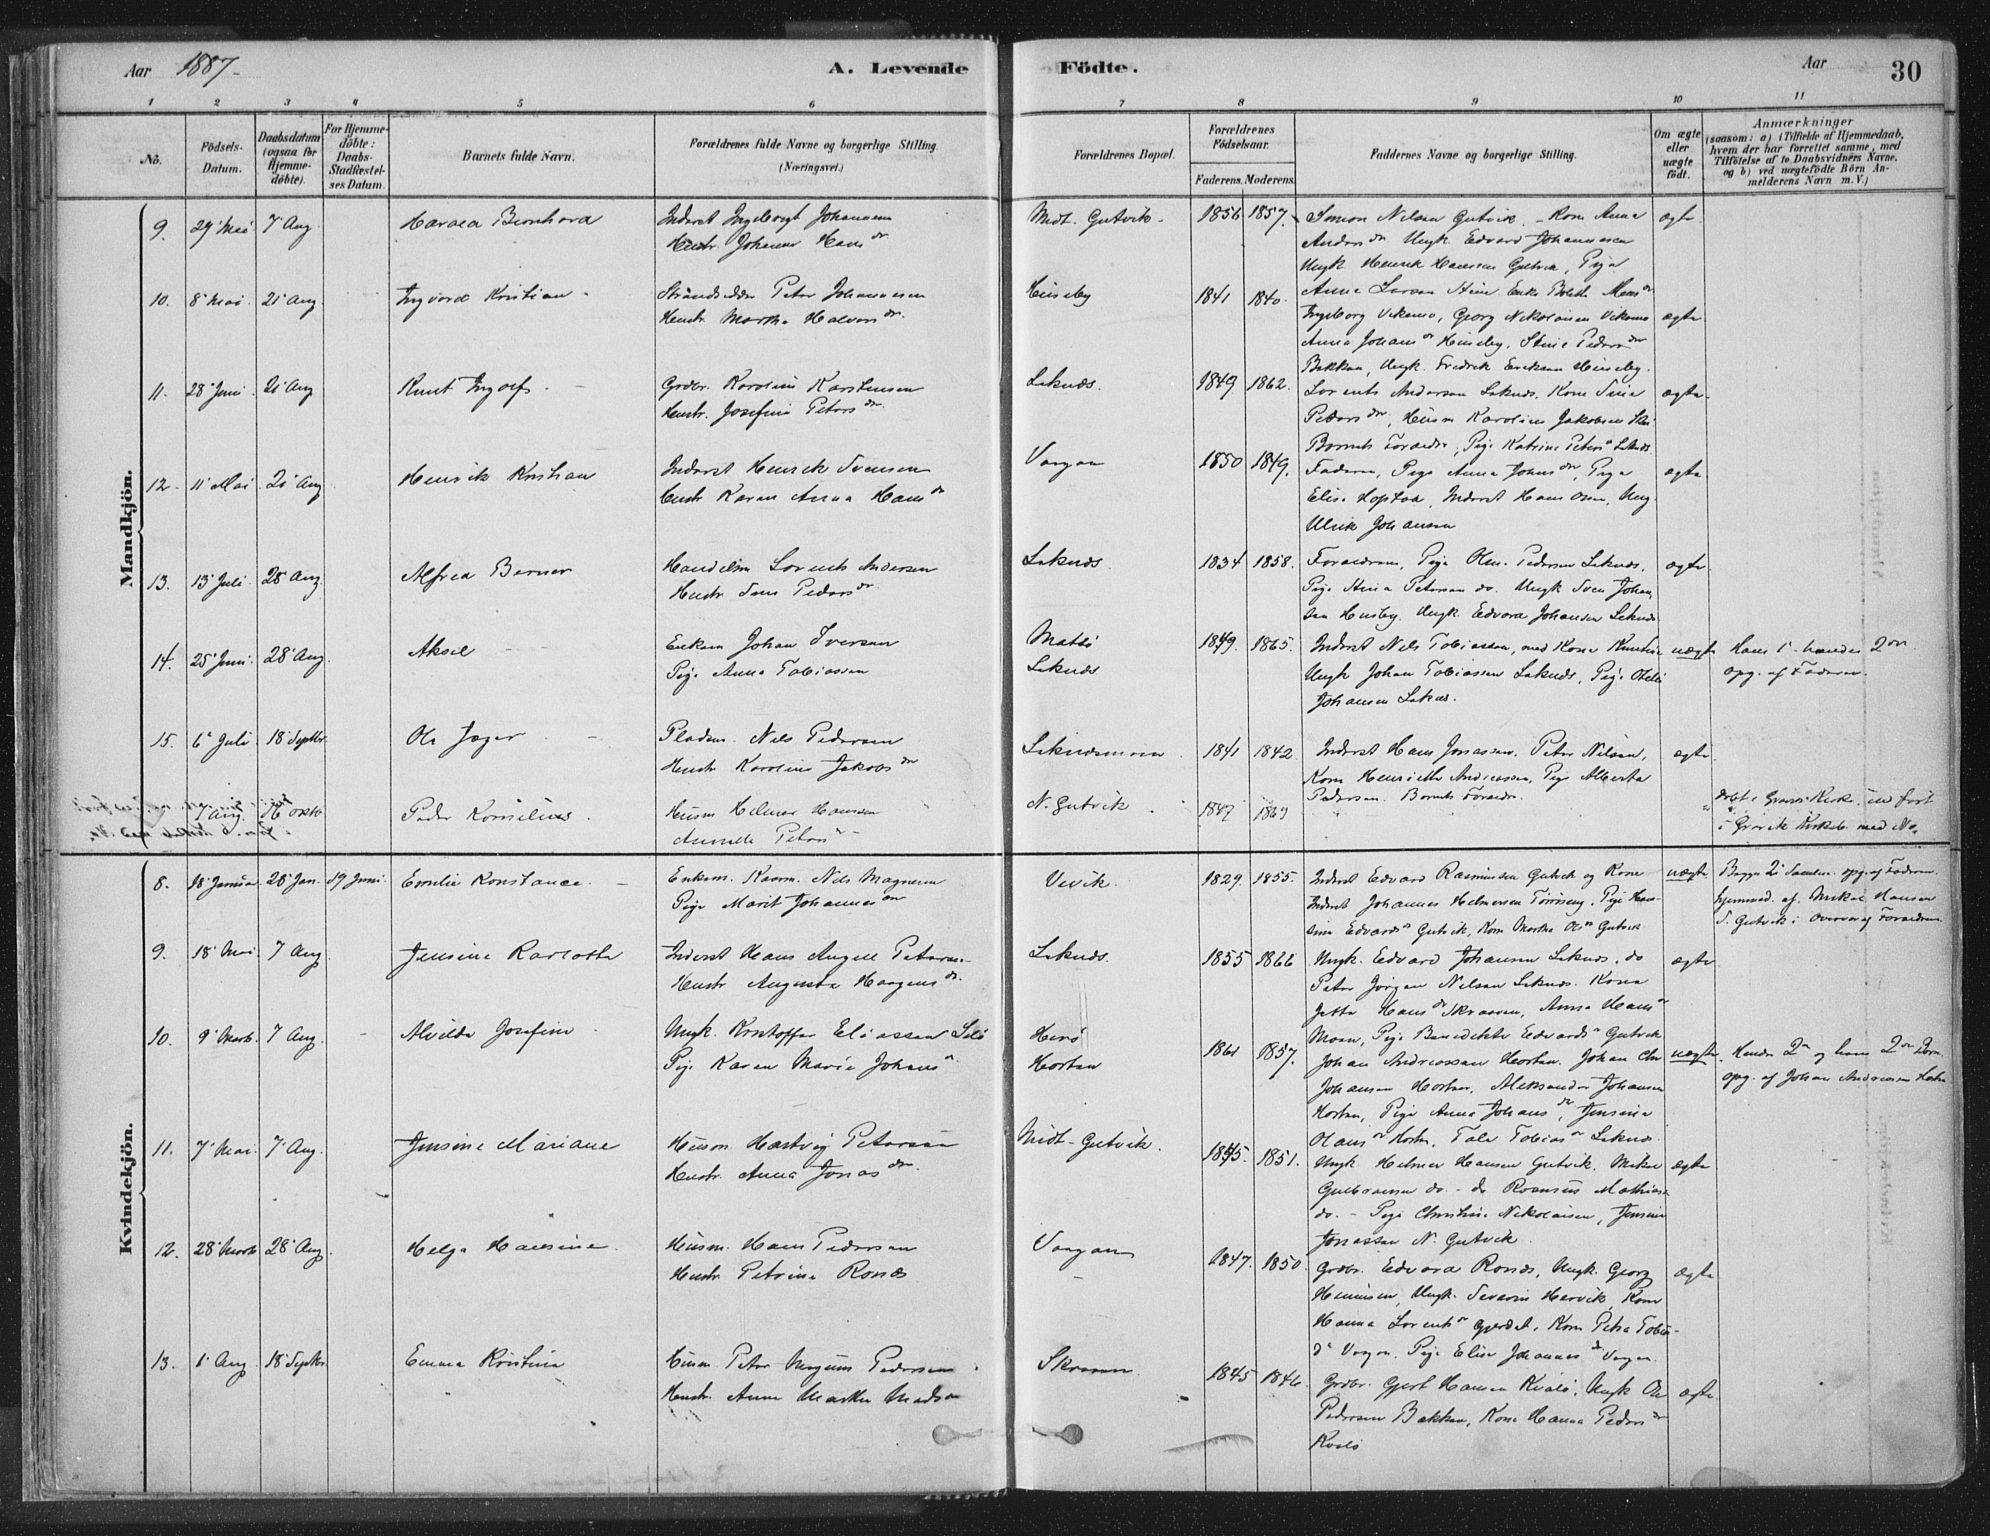 Aar 1887.
A. Levende Födte.
Aar
30
1 2 3 4 5 6 7 8 9 10 11
No.
Födsels-Datum.
Daabsdatum (ogsaa for Hjemme-döbte).
For Hjemme-döbte: Daabs-Stadfæstel-ses Datum.
Barnets fulde Navn.
Forældrenes fulde Navne og borgerlige Stilling. (Næringsvei.)
Forældrenes Bopæl.
Forældrenes Födselsaar.
Faderens. Moderens.
Faddernes Navne og borgerlige Stilling.
Om ægte eller uægte födt.
Anmærkninger
(saasom: a) i Tilfælde af Hjemmedaab, hvem der har forrettet samme, med Tilföielse af to Daabsvidners Navne, og b) ved uægtefödte Börn Anmelderens Navn m. V.)
Mandkjön.
9. 29 Mai 7 Aug Harald Bernhard
Inderst Ingebrigt Johannesen
Hustr. Johanna Hansdr
Midt. Gutvik 1856 1857
Simon Nilsen Gutvik - Kone Anna
Andersdr Ungk. Edvard Johannesen
Ungk. Henrik Hansen Gutvik, Pige
ægte
10. 8 Mai 21 Aug Ingvard Kristian
Strandsidder Peter Johannesen
Hustr. Martha Halvorsdr.
Huseby 1841 1840
Ingeborg Vikamo, Georg Nikolaisen Vikamo
Anna Johansdr Huseby, Stine Pedersdr
Bakken, Ungk. Fredrik Eriksen Huseby.
ægte
11. 28 Juni 21 Aug Knut Ingolf
Grdbr. Karolius Karstensen
Hustr. Josefine Petersdr.
Leknes. 1849 1862
Lorents Andersen Leknes, Kone Sina
Pedersdr, Husm Karolius Jakobsen
Barnets Forældre, Pige Katrine Peters Leknes
ægte
12. 11 Mai 21 Aug Henrik Kristian
Inderst Henrik Svensen
Hustr Karen Anna Hansdr
Vargan 1850 1849.
Faderen, Pige Anna Johnsdr, Pige
Elise Hopstad, Inderst Hans Olsen, Ung
Ulrik Johansen
ægte
13. 13 Juli 28 Aug Alfred Berner
Handelsm Lorents Andersen
Hustr Sina Pedersdr
Leknes 1834 1858.
Forældrene, Pige Oline Pedersen Leknes,
Pige Stina Petersen do. Ungk Sven Johan
sen Huseby. Ungk. Edvard Johansen Leknes
ægte
14. 25 Juni. 28 Aug. Aksel
Enkem Johan Iversen
Pige Anna Tobiassen
Leknes
1849. 1865.
Inderst Nils Tobiassen, med Kone
Ungk Johan Tobiassen Leknes, Pige
Johansen Leknes.
uægte
Hans 1ste hendes 2det
opg. af Faderen.
15. 6 Juli 18 Septbr. Ole Jæger
Pladsm. Nils Pedersen
Hustr Karoline Jakobsdr
Leknesmoen 1841 1842
Inderst Hans Jonassen, Peter Nilsen,
Kone Henriette Andreassen, Pige Alberta
Pedersen. Barnets Forældre.
ægte
7 Aug. Oktbr Peder Kornelius
Husm Helmer Hansen
Petersdr
N. Gutvik 1847 1863
döbt i
med No.
Kvindekjön.
8. 18 Januar 28 Jan. 19 Juni Emelie Konstance
Enkem. Kaarm. Nils Magnesen
Pige Marit Johannesdr
Vevik. 1829. 1855.
Inderst Edvard Rasmussen Gutvik og Kone
Inderst Johannes Helmersen Pige Han-
sine Edvards Gutvik, Kone Martha Ols Gutvik
uægte
Begges 2det Samleie. opg. af Faderen
hjemmed. af Mikal Hansen
S. Gutvik i Overvær af Forældrene
9. 18 Mai 7 Aug Jensine Karlotta
Inderst Hans Angell Petersen
Hustr Augusta Haagensdr.
Leknes. 1855 1866
Ungk. Edvard Johansen Leknes, do
Peter Jörgen Nilsen Leknes. Kone
Jetta Hansdr Skraaen, Anna Hans
Moen, Pige Benedikte Edvards Gutvik
ægte
10. 9 Marts 7 Aug. Alvilde Josefine
Ungk. Kristoffer Eliassen
Pige Karen Marie Johans
Herö
Hortan
1861 1857.
Johan Andreassen Hortan. Johan Chr
Johansen Hortan, Aleksander Johansen
Hortan, Pige Anna Johansdr, Jensine
Olaus Hortan, Tale Tobias Leknes
uægte.
Hendes 2det og hans 2det Barn
opg. af Johan Andreassen Hortan
11. 7 Mai. 7 Aug. Jensine Mariane
Husm Hartvig Petersen
Hustr. Anna Jonasdr.
Midt-Gutvik. 1845. 1851.
Ungk. Helmer Hansen Gutvik. Mikal
Gulbransen do. - do Rasmus Mathias
do. - Pige Christine Nikolaisen, Jensine
Jonassen N. Gutvik.
ægte
12. 28 Marts 28 Aug Helga Hansine
Husm. Hans Pedersen
Hustr. Petrine Ronæs
Vargan 1847. 1850.
Grdbr. Edvard Ronæs, Ungk. Georg
Henriksen, Ungk. Severin Hervik, Kone
Hanna Lorents Gjerdet, Kone Petra Tobias-
dr Vargan. Pige Elise Johannesdr Vargan
ægte
13. 1 Aug 18 Septbr. Emma Kristina
Husm Peter Magnus Pedersen
Hustr. Anne Martha Madsdr
Skraaen 1845 1846.
Grdbr. Gjert Hansen Kvalö, Ungk Ole
Pedersen Bakken, Kone Hanna Pedersdr
Kvalö
ægte